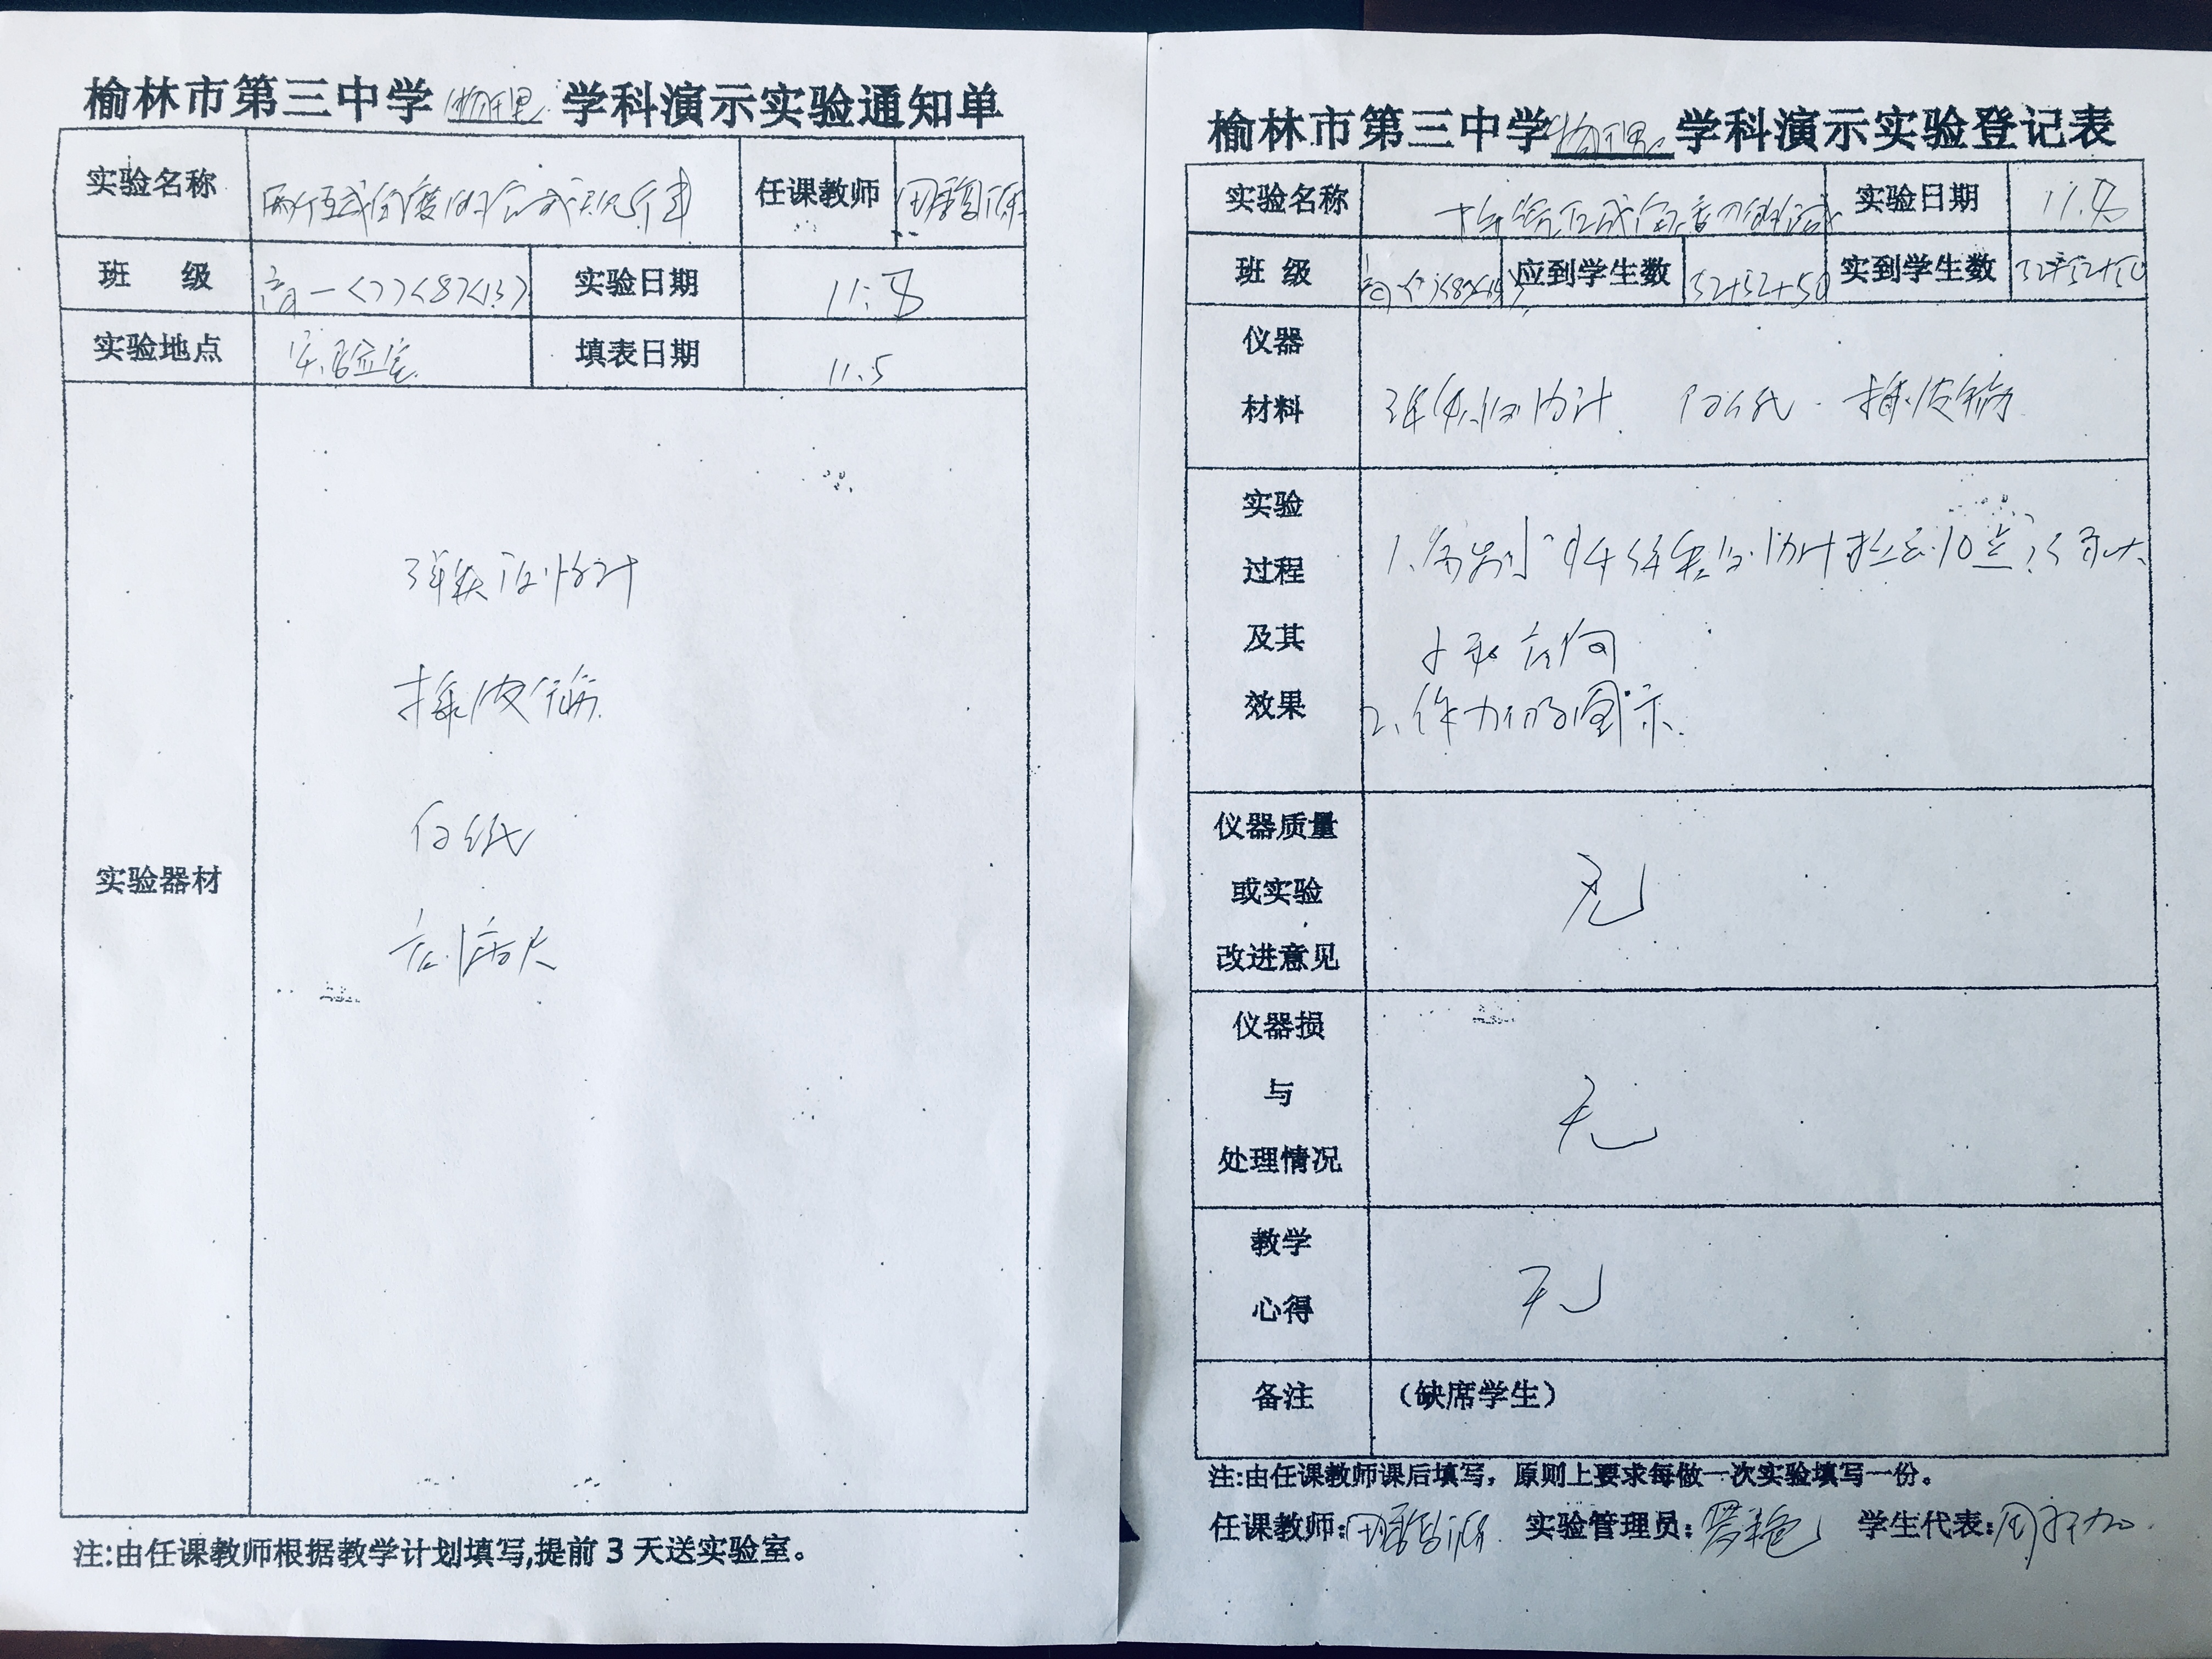 榆林市第三中学 物理 学科演示实验通知单
实验名称 两个互成角度的 任课教师
班 级 高一<7><8><13> 实验日期 11.8
实验地点 实验室 填表日期 11.5
实验器材
弹簧测力计
橡皮筋
白纸
注:由任课教师根据教学计划填写,提前3天送实验室。
榆林市第三中学 物理 学科演示实验登记表
实验名称 实验日期 11.8
班 级 应到学生数 52+52+50 实到学生数 52+52+50
仪器
材料
弹簧测力计 白纸 橡皮筋
实验
过程
及其
效果
1.分别 弹簧测力计
方向
2.作力的图示.
仪器质量
或实验
改进意见
无
仪器损
与
处理情况
无
教学
心得
无
备注 (缺席学生)
注:由任课教师课后填写，原则上要求每做一次实验填写一份。
任课教师: 实验管理员: 学生代表: